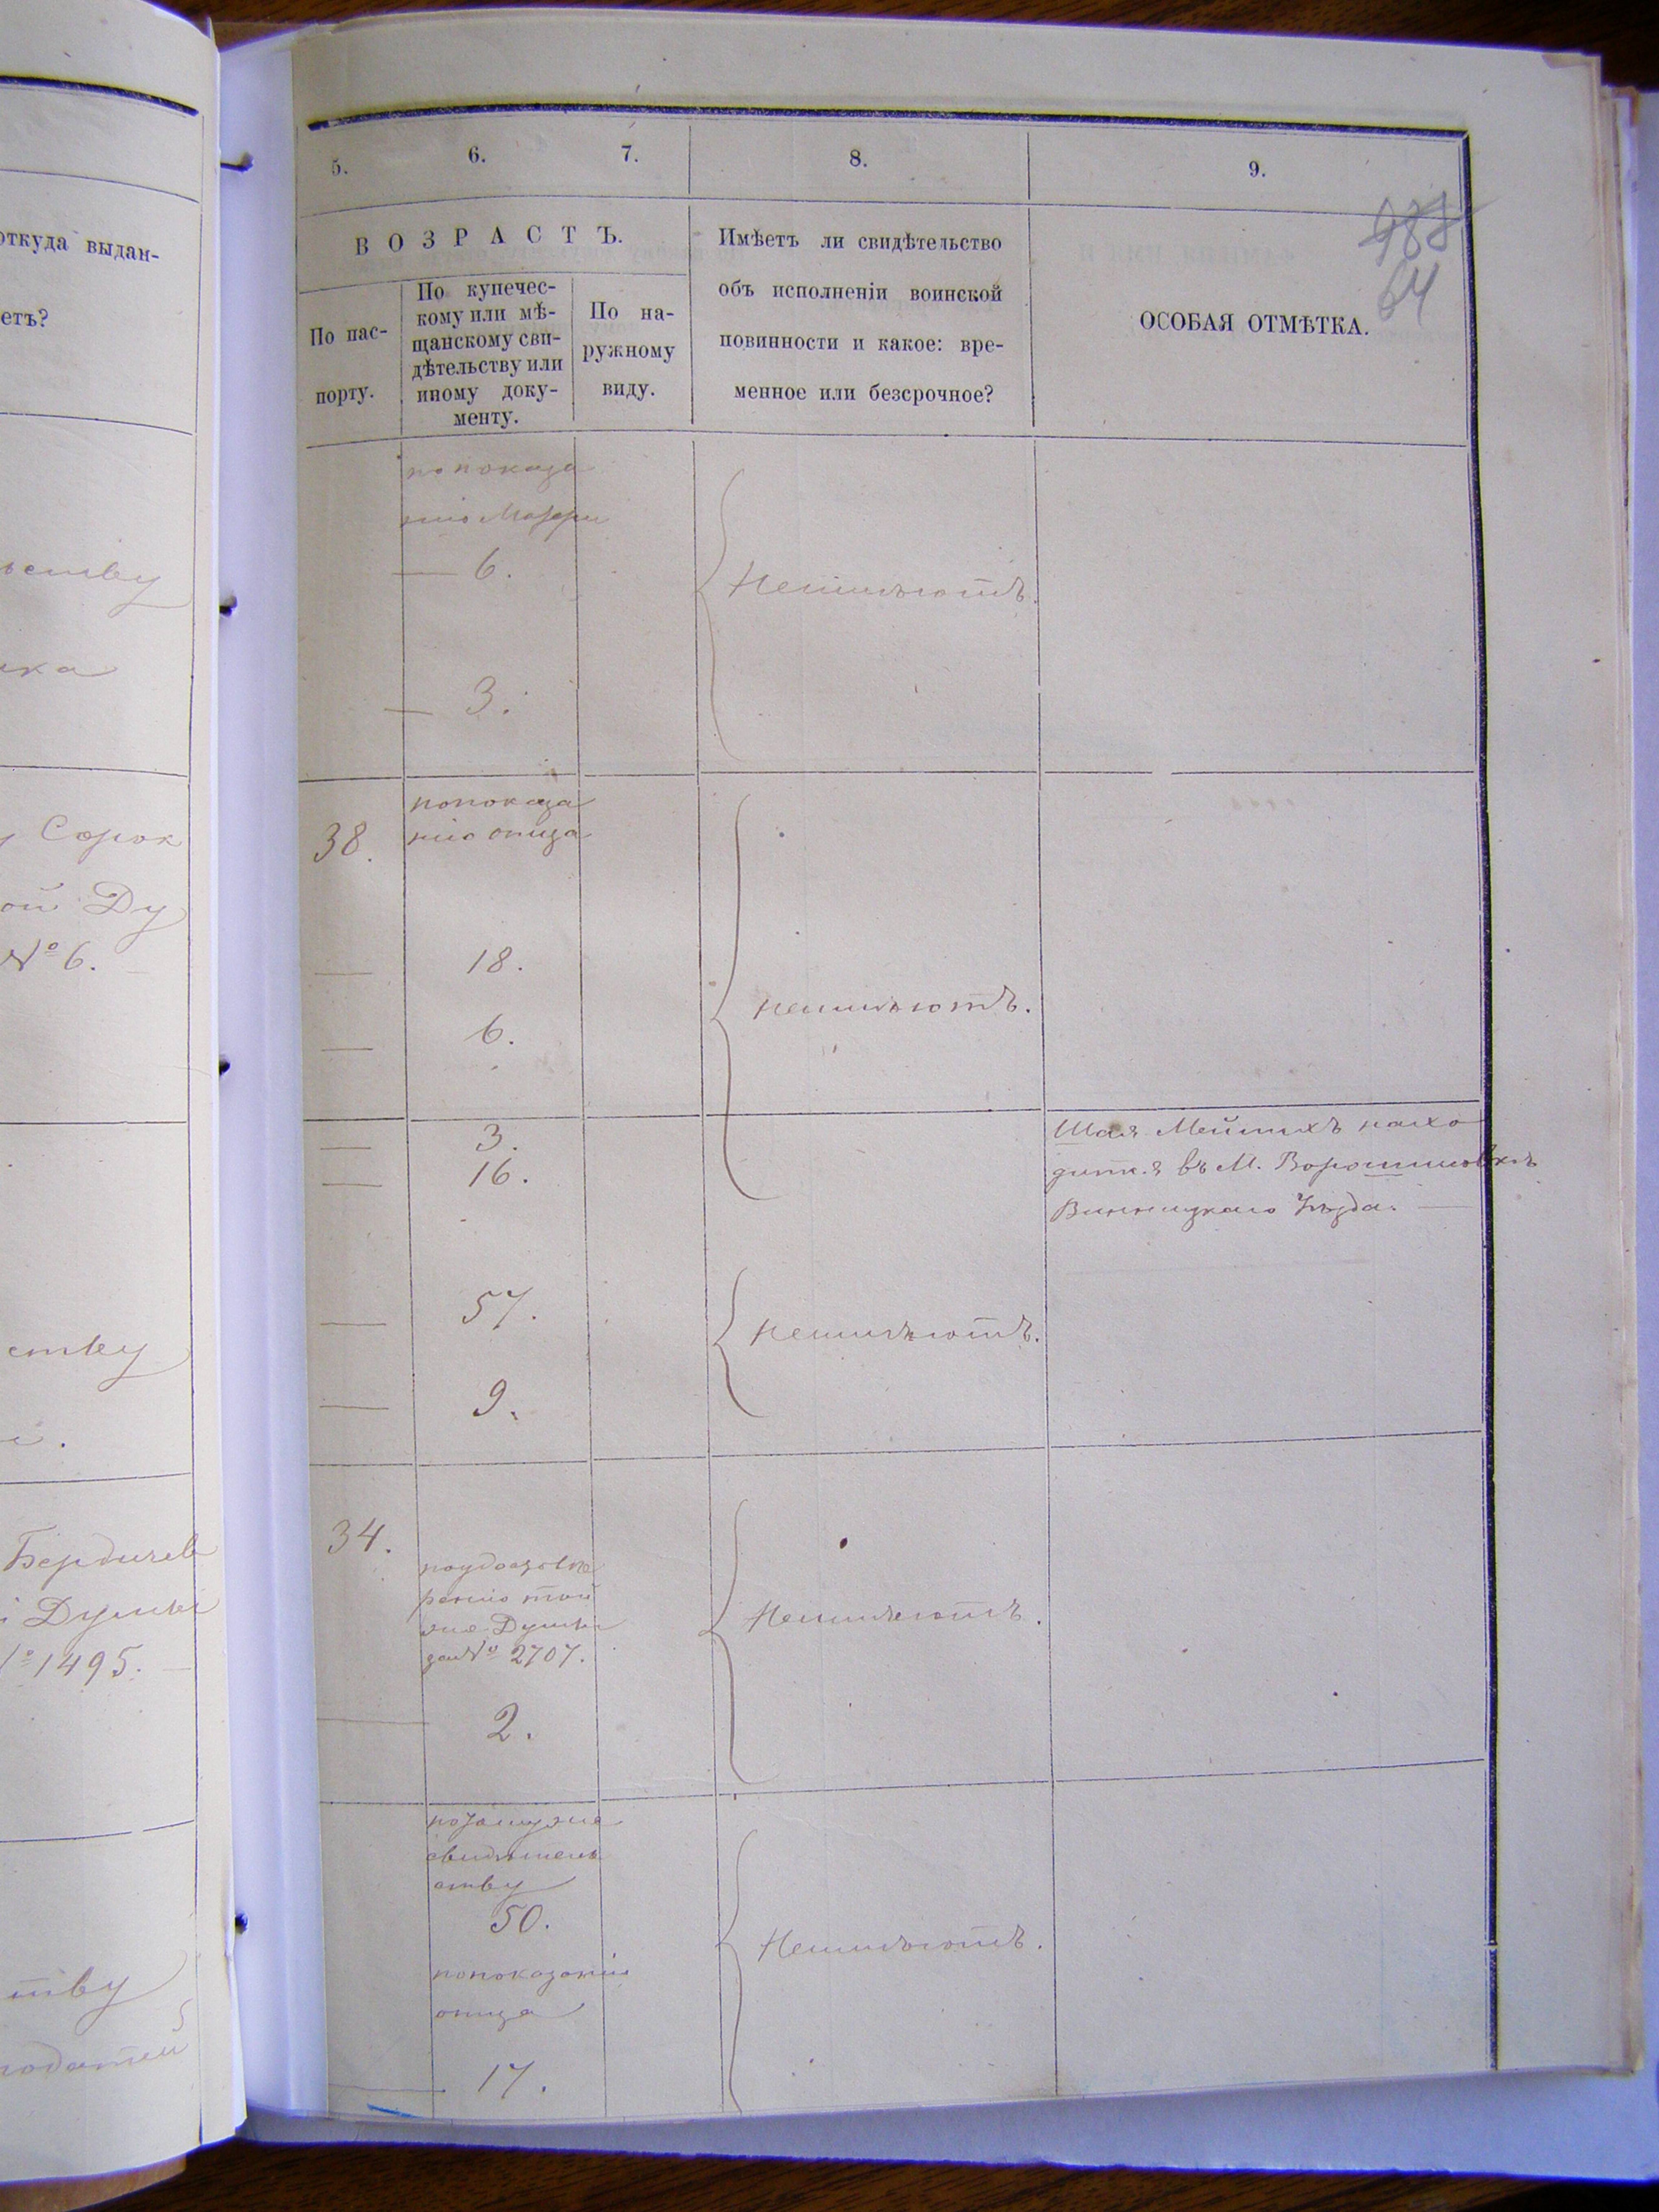 откуда выдан-
етъ?
ьству
ика
Сорок
ой Ду
№ 6.
ству
Бердичев
Думы
№ 1495.
тву
податей
5. 6. 7. 8. 9.
988
64
ВОЗРАСТЪ.
По пас-
порту.
По купечес-
кому или мѣ-
щанскому сви-
дѣтельству или
иному доку-
менту.
По на-
ружному
виду.
Имѣетъ ли свидѣтельство
объ исполненіи воинской
повинности и какое: вре-
менное или безсрочное?
ОСОБАЯ ОТМѢТКА.
по показа
нію Матери
— 6.
Неимѣютъ.
— 3.
попоказа
38. нію отца
— 18.
неимѣютъ.
— 6.
— 3.
— 16.
Шая Мейтихъ нахо
дится въ М. Ворошиловкѣ
Винницкаго Уѣзда. —
— 57.
неимѣютъ.
— 9.
34.
поудостове
ренію той
же Думы
за № 2707.
Неимѣютъ.
— 2.
свидѣтель
ству
50.
Неимѣютъ.
попоказанію
отца
— 17.